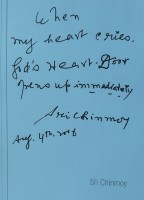 When
my heart cries.
God's Heart-Door
opens up immediately
Sri Chinmoy
Aug. 4th. 2006
Sri Chinmoy